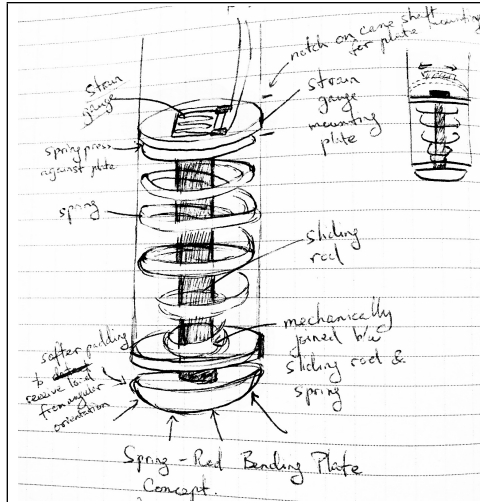 notch on cane shaft
for plate mounting
strain
gauge
strain
gauge
mounting
plate
spring press
against plate
spring
sliding
rod
mechanically
joined b/w
sliding rod &
spring
softer padding
to
receive load
from angular
orientation
Spring-Rod Bending Plate
Concept.